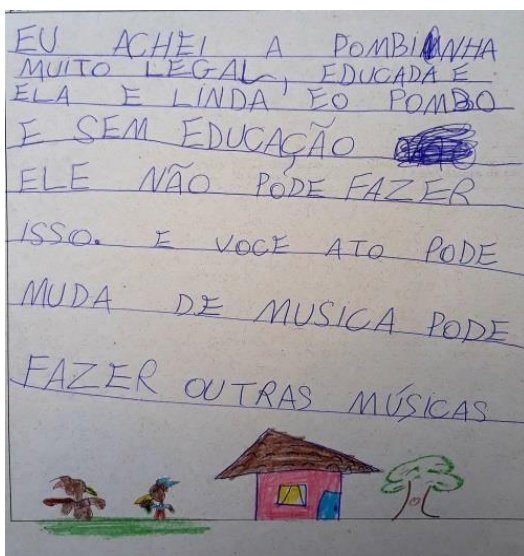 EU ACHEI A POMBINHA
MUITO LEGAL, EDUCADA E
ELA E LINDA EO POMBO
E SEM EDUCAÇÃO
ELE NÃO PODE FAZER
ISSO. E VOCE ATO PODE
MUDA DE MUSICA PODE
FAZER OUTRAS MÚSICAS